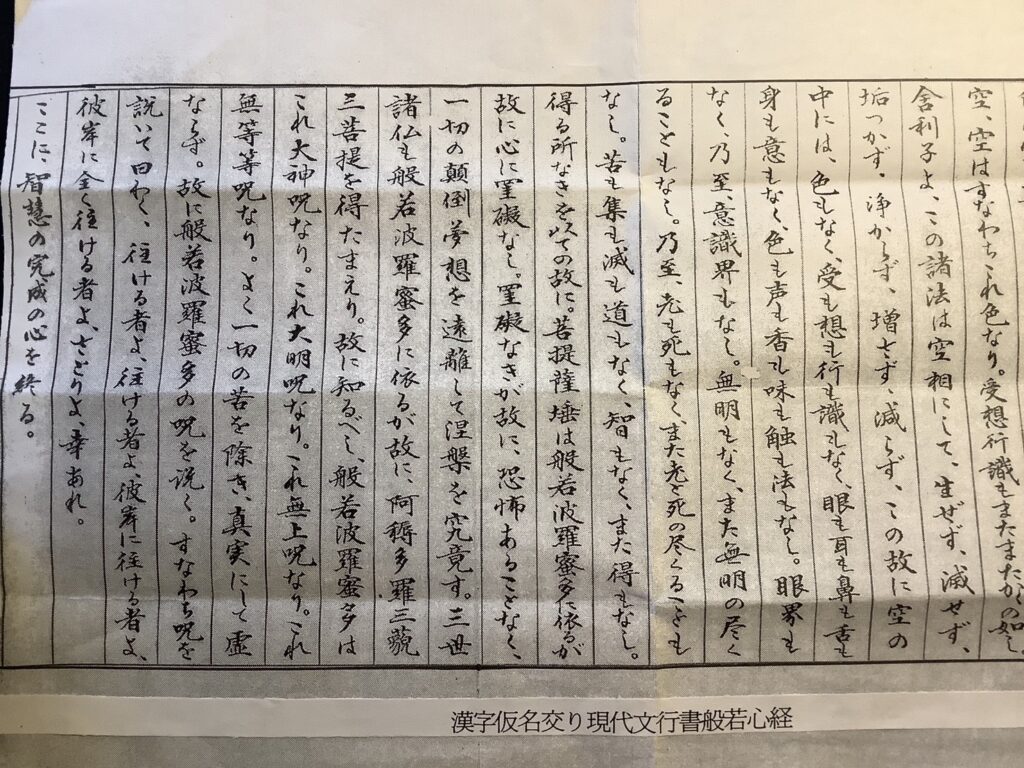 空、空はすなわちこれ色なり。受想行識もまたまたかくの如し
舎利子よ、この諸法は空相にして、生ぜず、滅せず、
垢つかず、浄からず、増さず、減らず、この故に空の
中には、色もなく、受も想も行も識もなく、眼も耳も鼻も舌も
身も意もなく、色も声も香も味も触も法もなし。眼界も
なく、乃至、意識界もなし。無明もなく、また無明の尽く
ることもなし。乃至、老も死もなく、また老と死の尽くることも
なし。苦も集も滅も道もなく、智もなく、また得もなし。
得る所なきを以ての故に。菩提薩埵は般若波羅蜜多に依るが
故に心に罣礙なし。罣礙なきが故に、恐怖あることなく、
一切の顛倒夢想を遠離して涅槃を究竟す。三世
諸仏も般若波羅蜜多に依るが故に、阿耨多羅三藐
三菩提を得たまえり。故に知るべし、般若波羅蜜多は
これ大神呪なり。これ大明呪なり。これ無上呪なり。これ
無等等呪なり。よく一切の苦を除き、真実にして虚
ならず。故に般若波羅蜜多の呪を説く。すなわち呪を
説いて曰わく、往ける者よ、往ける者よ、彼岸に往ける者よ、
彼岸に全く往ける者よ、さとりよ、幸あれ。
ここに、智慧の完成の心を終る。
漢字仮名交り現代文行書般若心経